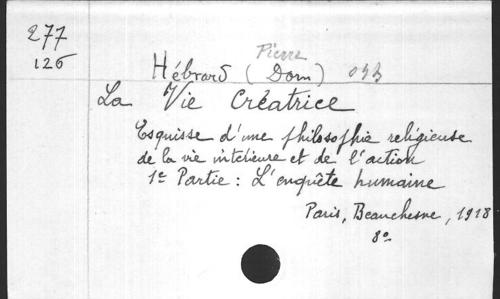 277
126
Pierre
Hébrard (Dom)
La Vie Créatrice
Esquisse d'une philosophie religieuse
de la vie intérieure et de l'action
1e Partie : L'enquête humaine
Paris, Beauchesne, 1918
8o